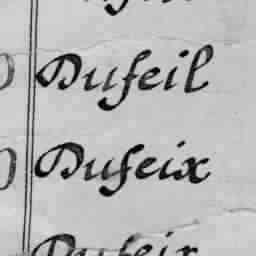 Dufeil
Dufeix